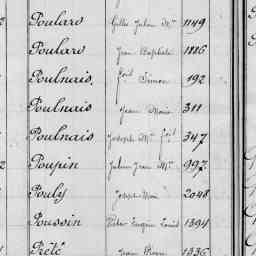 Poulard Gilles Julien Mie 1149
Poulard Jean Baptiste 1886
Poulnais, fois Simon 192
Poulnais Jean Marie 311
Poulnais Joseph Mie fois 347
Poupin Julien Jean Mie 997
Pouly Joseph Marie 2048
Poussin Victor Eugène Louis 1394
Prêté Jean Pierre 1336